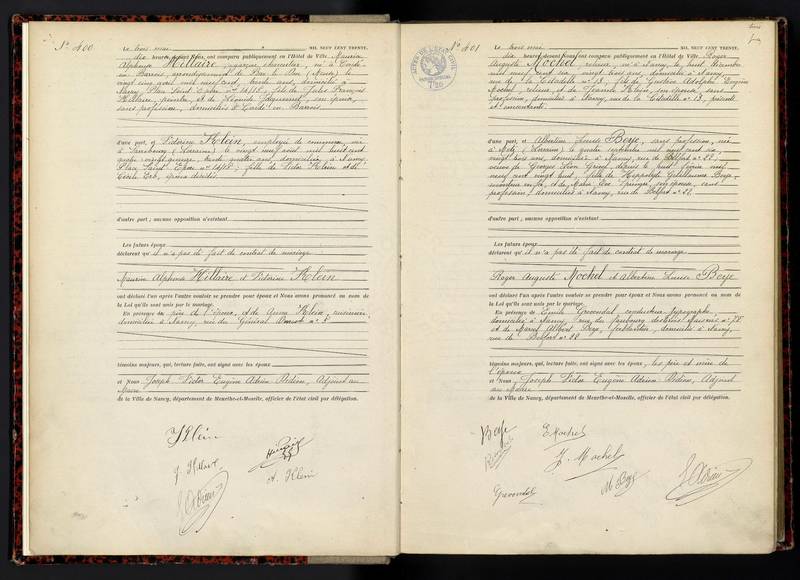 N° 400
Le trois mai MIL NEUF CENT TRENTE,
dix heures devant Nous ont comparu publiquement en l'Hôtel de Ville Maurice
Alphonse Hillaire, garçon, domestier, né à Condé-
en Barrois, arrondissement de Bar le Duc (Meuse) le
vingt cinq avril mil neuf cent, trente ans, domicilié à
Nancy, Place Saint Epvre n° 14/18, fils de Jules François
Hillaire, peintre, et de Léonide Jacquemet, son épouse,
sans profession, domiciliés à Condé-en Barrois
d'une part, et Victorine Klein, employée de commerce, née
à Sarrebourg (Lorraine) le vingt neuf avril mil huit cent
quatre vingt quinze, trente quatre ans, domiciliée à Nancy
Place Saint Epvre n° 14/18, fille de Victor Klein et de
Cécile Erb, époux décédés
d'autre part ; aucune opposition n'existant
Les futurs époux
déclarent qu'il n'a pas été fait de contrat de mariage.
Maurice Alphonse Hillaire et Victorine Klein
ont déclaré l'un après l'autre vouloir se prendre pour époux et Nous avons prononcé au nom de
la Loi qu'ils sont unis par le mariage.
En présence du père de l'époux, et de Anna Klein, cuisinière,
domiciliée à Nancy, rue du Général n° 5
témoins majeurs, qui, lecture faite, ont signé avec les époux
et Nous Joseph Victor Eugène Adrien Rédien, Adjoint au
Maire
de la Ville de Nancy, département de Meurthe-et-Moselle, officier de l'état civil par délégation.
V Klein
J Hillaire
A. Klein
N° 401
Le trois mai MIL NEUF CENT TRENTE,
dix heures devant Nous ont comparu publiquement en l'Hôtel de Ville Roger
Auguste Mochel, relieur, né à Nancy, le huit décembre
mil neuf cent six, vingt trois ans, domicilié à Nancy,
rue de la Citadelle n° 13, fils de Gustave Adolphe Eugène
Mochel, relieur, et de Jeanne Klein, son épouse, sans
profession, domiciliés à Nancy, rue de la Citadelle n° 13, présents
et consentants
d'une part, et Albertine Louise Beye, sans profession, née
à Metz (Lorraine) le quatre septembre mil neuf cent six,
vingt trois ans, domiciliée à Nancy, rue de Belfort n° 22,
veuve de Georges Léon décédé le huit février mil
neuf cent vingt huit, fille de Hippolyte Guillaume Beye,
et de Marie Eve Springer, son épouse, sans
profession, domiciliés à Nancy, rue de Belfort n° 22
d'autre part ; aucune opposition n'existant
Les futurs époux
déclarent qu'il n'a pas été fait de contrat de mariage
Roger Auguste Mochel et Albertine Louise Beye
ont déclaré l'un après l'autre vouloir se prendre pour époux et Nous avons prononcé au nom de
la Loi qu'ils sont unis par le mariage.
En présence de Emile Gravondal, conducteur typographe,
domicilié à Nancy, rue du faubourg des trois Maisons n° 78
et de Marcel Albert Beye, ferblantier, domicilié à Nancy,
rue de Belfort n° 22
témoins majeurs, qui, lecture faite, ont signé avec les époux, les père et mère de
l'époux
et Nous, Joseph Victor Eugène Adrien Rédien, Adjoint
au Maire
de la Ville de Nancy, département de Meurthe-et-Moselle, officier de l'état civil par délégation.
Beye
E Mochel
J. Mochel
Gravondal
M Beye